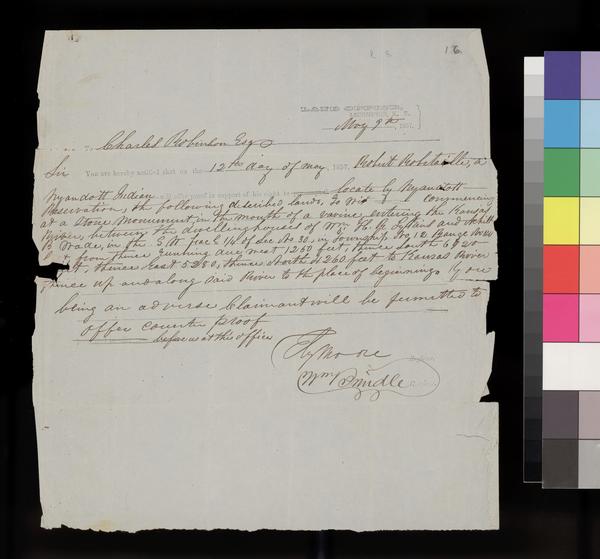 16
LAND OFFICE,
LECOMPTON, K. T.
May 9th, 1857.
To Charles Robinson Esq
Sir You are hereby notified that on the 12th day of may, 1857, Robert Robetaille, a
Wyandott Indian will offer proof in support of his right to locate by Wyandott
Reservation, the following described lands, To Wit Commencing
at a Stone Monument, in the mouth of a ravine, entering the Kansas
River, between the dwelling houses of Wm. H. R. Lykins and
B. Wade, in the S. W. frac E 1/4 of Sec No 30, in Township No 12, Range No
& from thence running due west 1260 feet, thence South
thence East 5280, thence North 4260 feet to Kansas River
thence up and along said River to the place of beginning. You
being an adverse Claimant will be permitted to
offer counter proof
before us at this office
Ely Moore Register.
Wm Brindle Receiver.